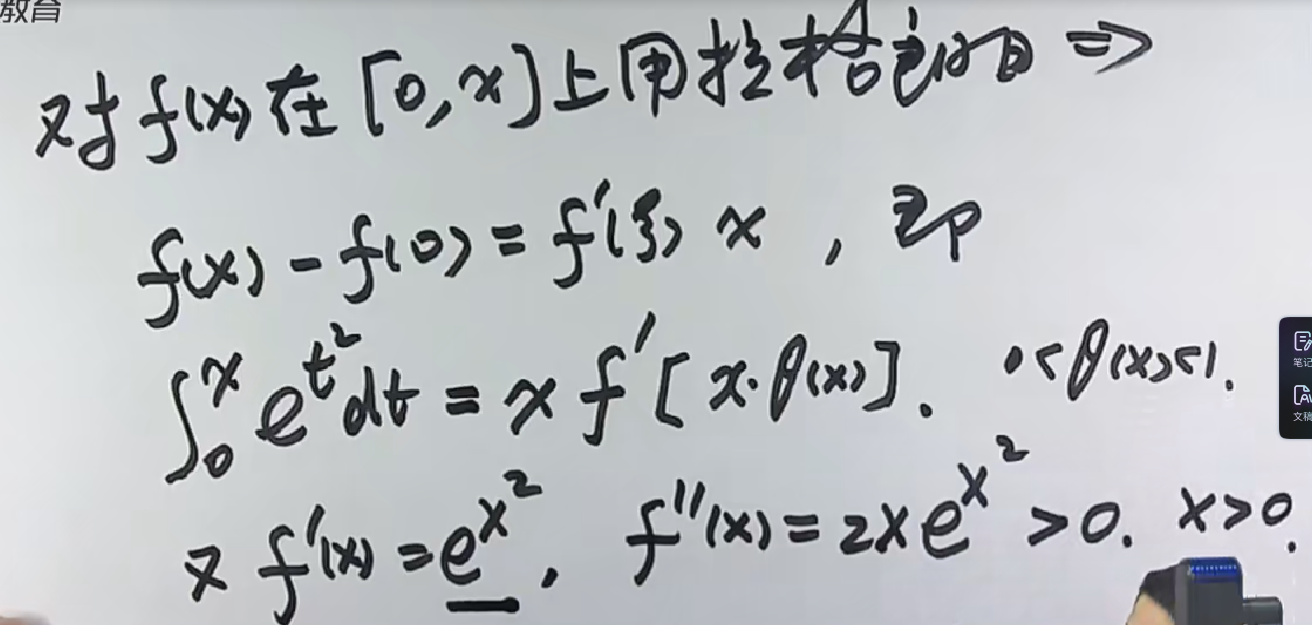 教育
对 f(x) 在 [0, x] 上用拉格 ⇒
f(x) - f(0) = f'(ξ) x , 即
∫₀ˣ e^{t²} dt = x f'[x·θ(x)]. 0<θ(x)<1.
又 f'(x) = e^{x²}, f''(x) = 2x e^{x²} > 0. x>0.
笔记
文稿